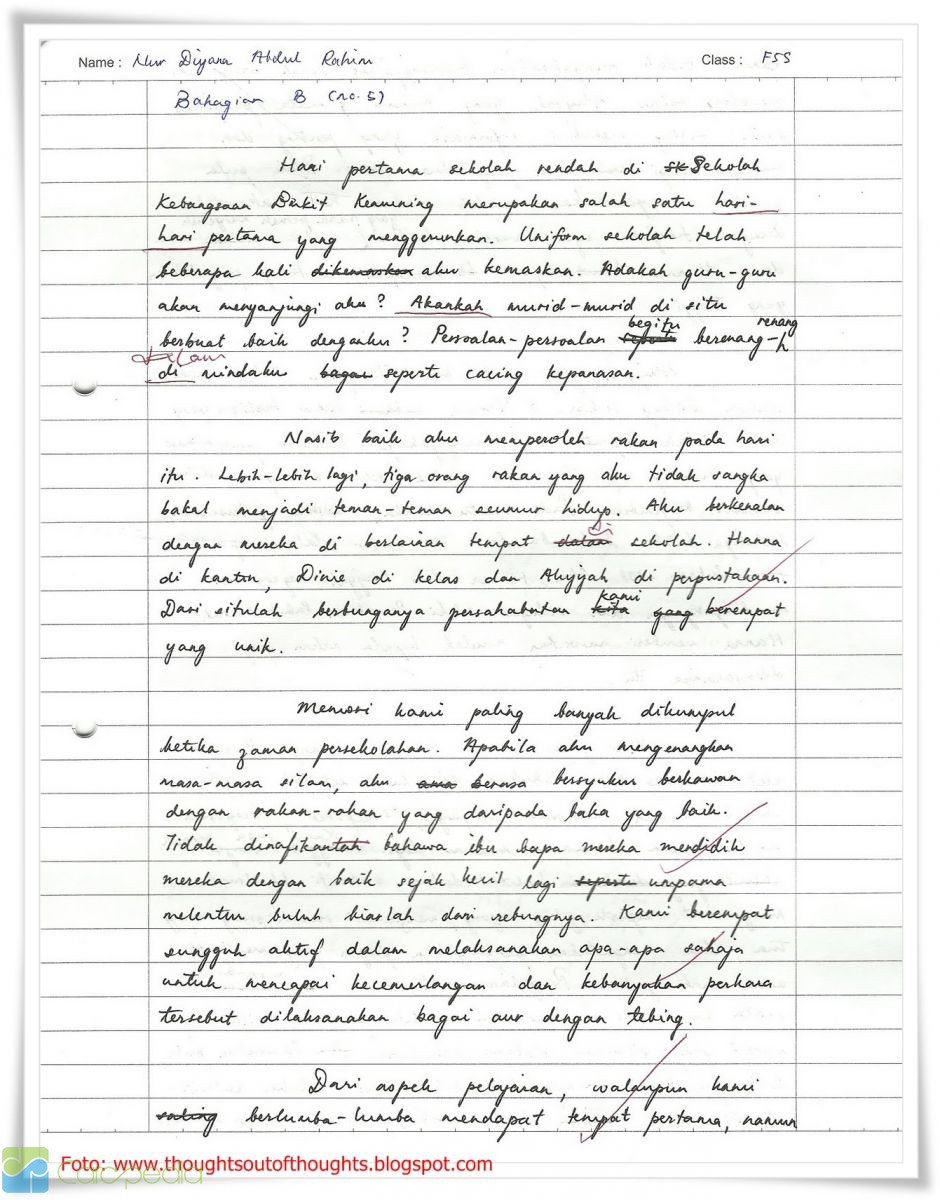 Name : Nur Diyana Abdul Rahim Class : F5S
Bahagian B (no. 5)
Hari pertama sekolah rendah di sk Sekolah
Kebangsaan Bukit Kemuning merupakan salah satu hari-
hari pertama yang menggerunkan. Uniform sekolah telah
beberapa kali dikemaskan aku kemaskan. Adakah guru-guru
akan menyanjungi aku? Akankah murid-murid di situ
begitu renang
berbuat baik denganku? Persoalan-persoalan seperti berenang-
dalam
di mindaku bagai seperti cacing kepanasan.
Nasib baik aku memperoleh rakan pada hari
itu. Lebih-lebih lagi, tiga orang rakan yang aku tidak sangka
bakal menjadi teman-teman seumur hidup. Aku berkenalan
di
dengan mereka di berlainan tempat dalam sekolah. Hanna
di kantin, Dinie di kelas dan Aliyyah di perpustakaan.
kami
Dari situlah berbunganya persahabatan kita yang berempat
yang unik.
Memori kami paling banyak dikumpul
ketika zaman persekolahan. Apabila aku mengenangkan
masa-masa silam, aku berasa bersyukur berkawan
dengan rakan-rakan yang daripada baka yang baik.
Tidak dinafikanlah bahawa ibu bapa mereka mendidik
mereka dengan baik sejak kecil lagi seperti umpama
melentur buluh biarlah dari rebungnya. Kami berempat
sungguh aktif dalam melaksanakan apa-apa sahaja
untuk mencapai kecemerlangan dan kebanyakan perkara
tersebut dilaksanakan bagai aur dengan tebing.
Dari aspek pelajaran, walaupun kami
saling berlumba-lumba mendapat tempat pertama, namun
Foto: www.thoughtsoutofthoughts.blogspot.com